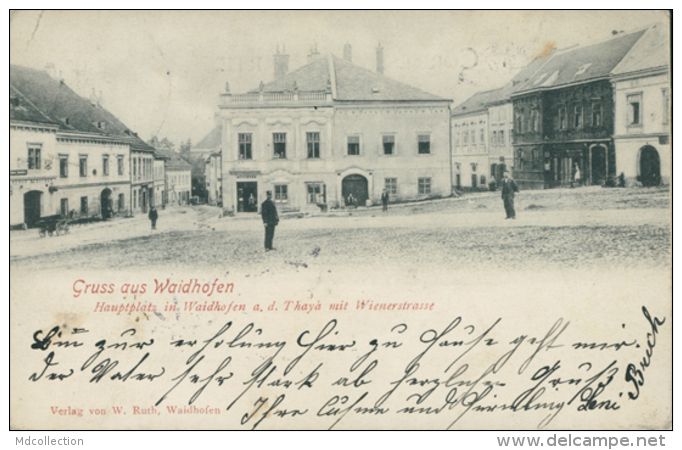 Gruss aus Waidhofen
Hauptplatz in Waidhofen a. d. Thaya mit Wienerstrasse
Bin zur erholung hier zu Hause geht mir
der Vater sehr stark ab herzlichen Gruß
Ihre Leni Bruch
Verlag von W. Ruth, Waidhofen
Mdcollection
www.delcampe.net